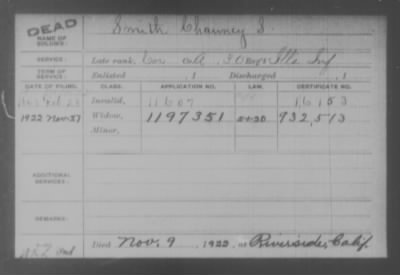 DEAD
NAME OF SOLDIER: Smith Chauncy S.
SERVICE: Late rank, Co. Ills Inf
TERM OF SERVICE: Enlisted , 1 Discharged , 1
DATE OF FILING. CLASS. APPLICATION NO. LAW. CERTIFICATE NO.
Invalid, 11607 16153
1922 Nov 27 Widow, 1197351 932,513
Minor,
ADDITIONAL SERVICES:
REMARKS:
Died Nov. 9, 1922, at Riverside, Calif.